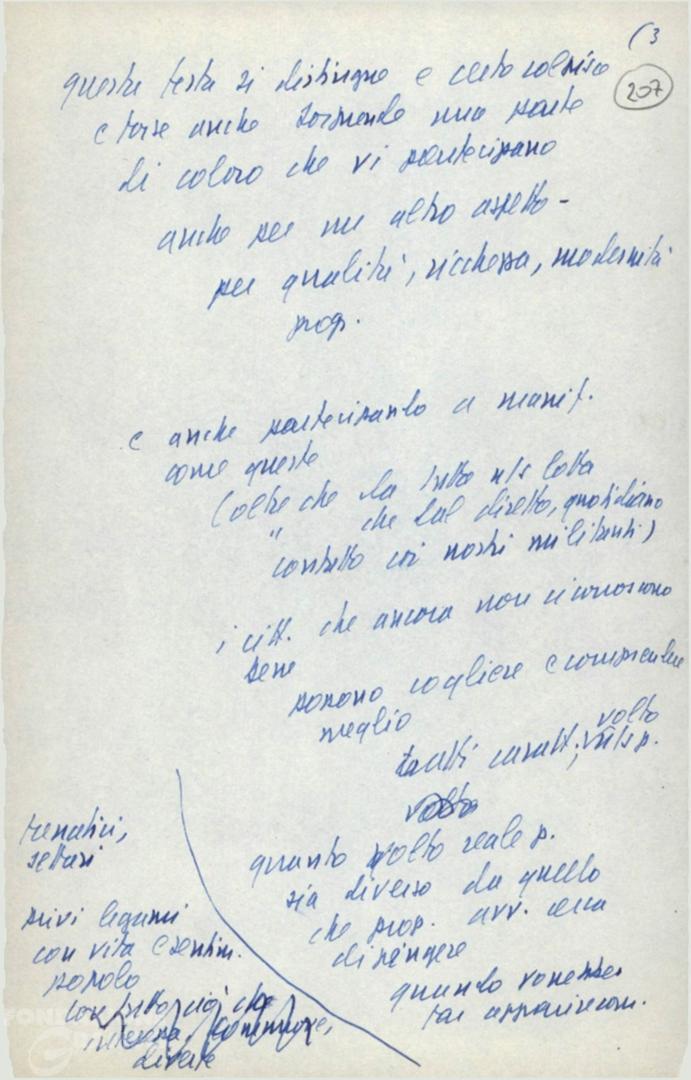 (3
207
questa festa si distingue e certo colpisce
e forse anche sorprende una parte
di coloro che vi partecipano
anche per un altro aspetto -
per qualità, ricchezza, modernità
prop.
e anche partecipando a manif.
come queste
(oltre che da tutto ns lotta
" che dal diretto, quotidiano
contatto coi nostri militanti)
i citt. che ancora non ci conoscono
bene
possono cogliere e comprendere
meglio
tratti caratt., volto
p.
quanto volto reale p.
sia diverso da quello
che prop. avv. cerca
dipingere
quando
far apparire com.
fanatici,
settari
privi legami
con vita e sentim.
popolo
con tutto ciò che
interessa, commuove,
diverte